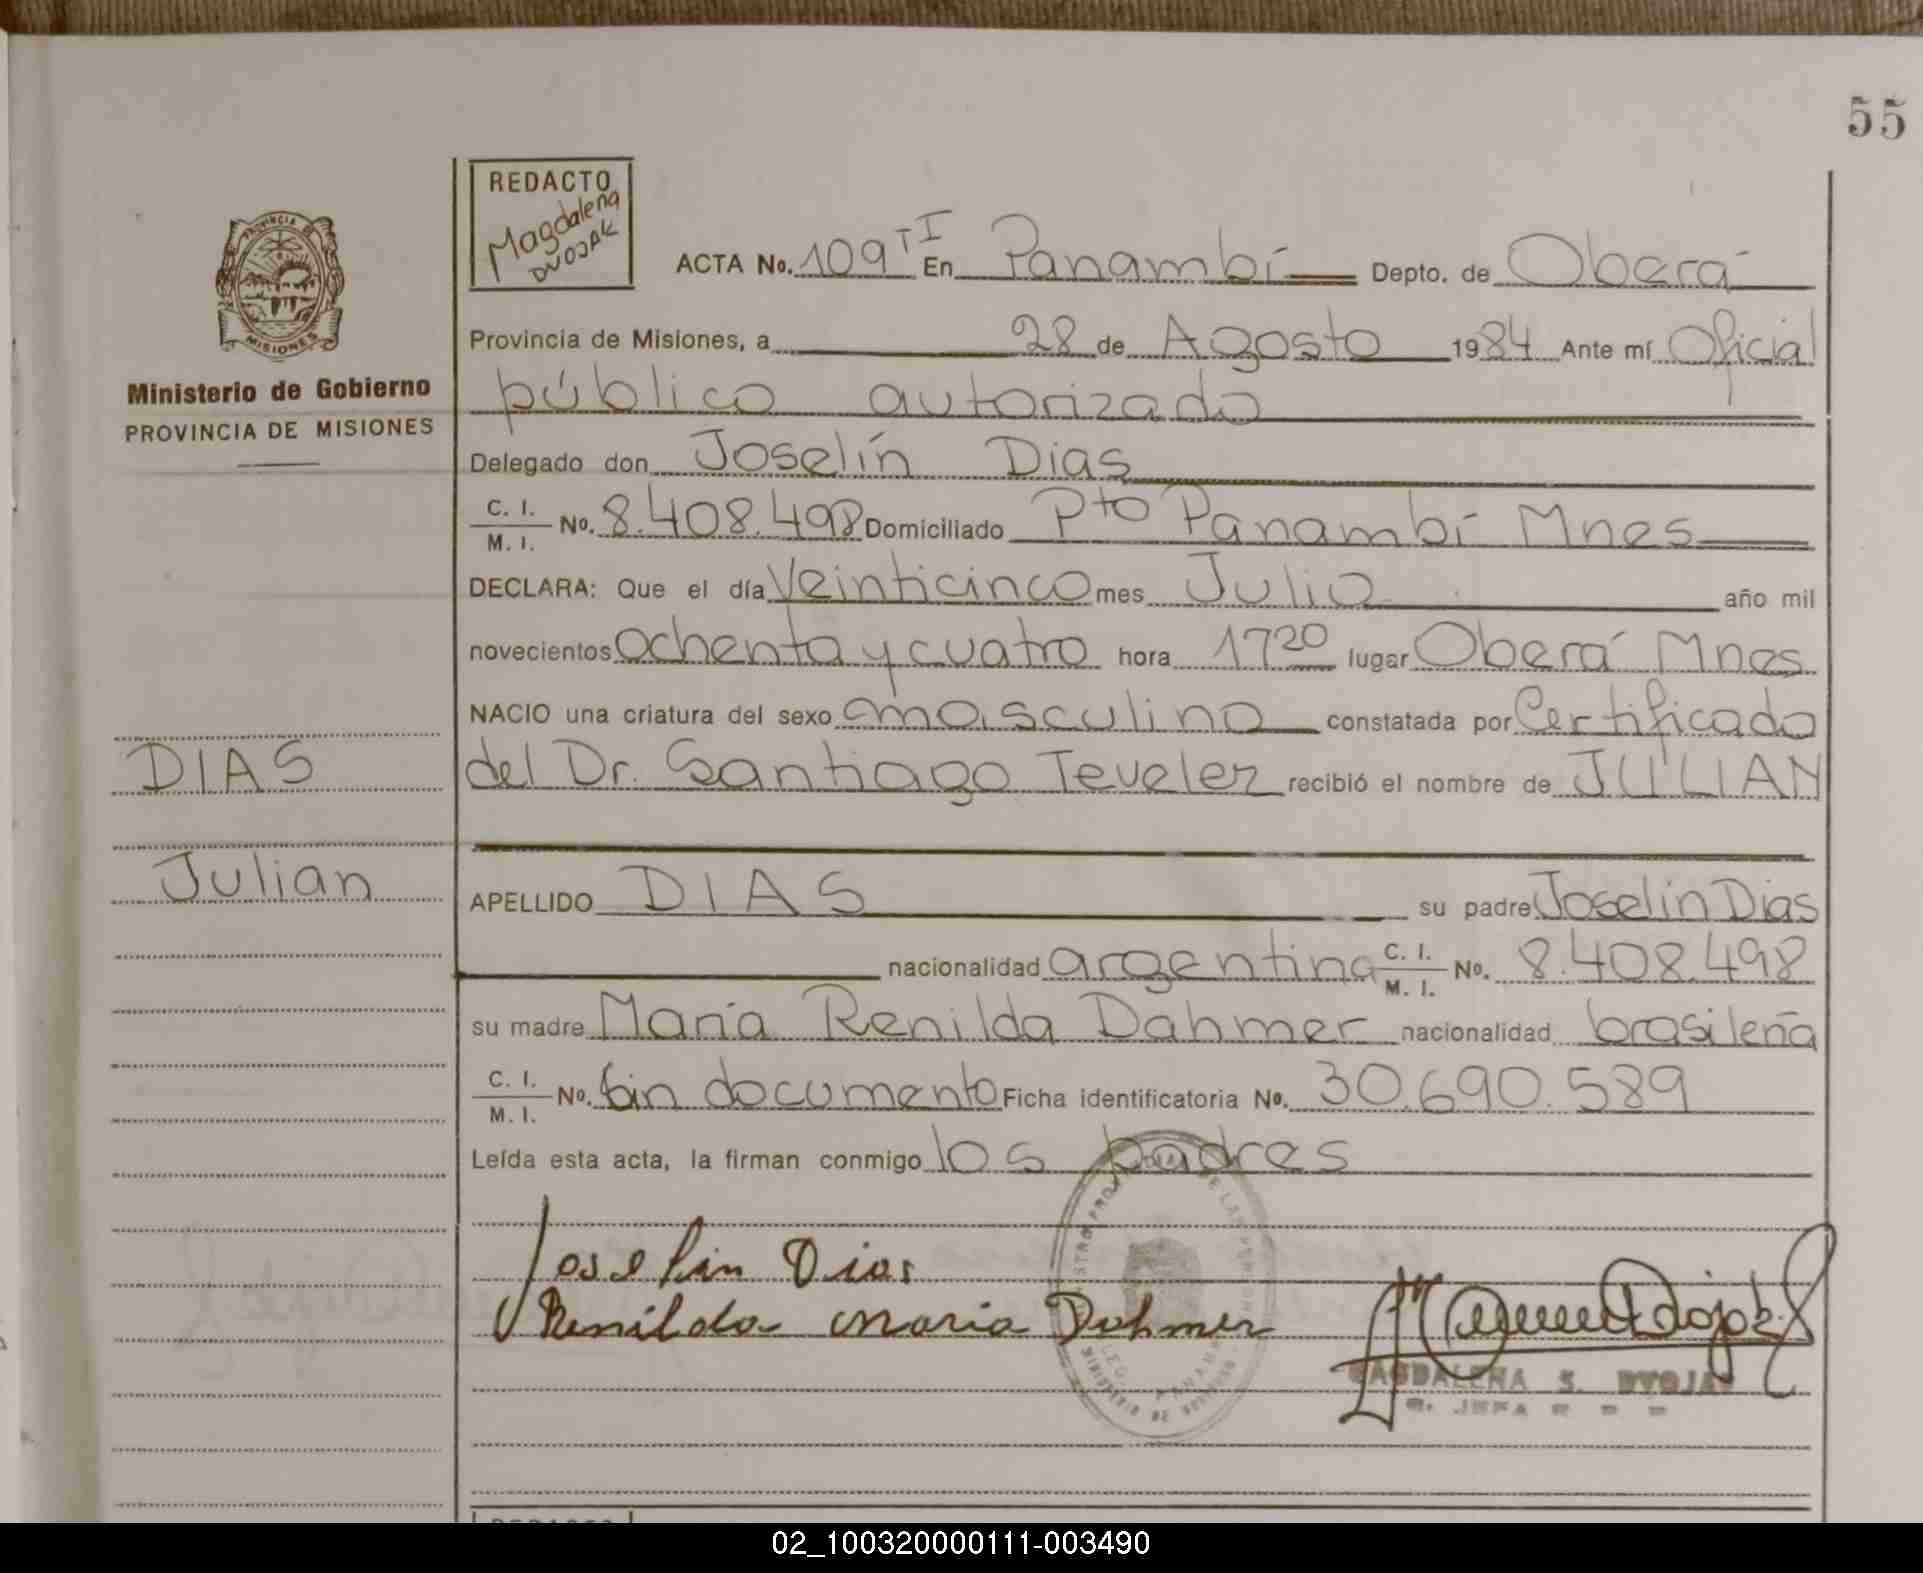 55
REDACTO
Magdalena
DVOJAK
ACTA No. 109 TI En Panambí Depto. de Oberá
Provincia de Misiones, a 28 de Agosto 1984 Ante mí Oficial
público autorizado
Delegado don Joselín Dias
C. I.
M. I.
No. 8.408.498 Domiciliado Pto Panambí Mnes
DECLARA: Que el día Veinticinco mes Julio año mil
novecientos ochenta y cuatro hora 17 20 lugar Oberá Mnes
NACIO una criatura del sexo masculino constatada por Certificado
del Dr. Santiago Teveler recibió el nombre de JULIAN
APELLIDO DIAS su padre Joselín Dias
nacionalidad argentina C. I.
M. I.
No. 8.408.498
su madre María Renilda Dahmer nacionalidad brasileña
C. I.
M. I.
No. sin documento Ficha identificatoria No. 30.690.589
Leída esta acta, la firman conmigo los padres
Joselin Dias
Renilda Maria Dahmer
MAGDALENA S. DVOJAK
PROVINCIA DE
MISIONES
Ministerio de Gobierno
PROVINCIA DE MISIONES
DIAS
Julian
02_100320000111-003490